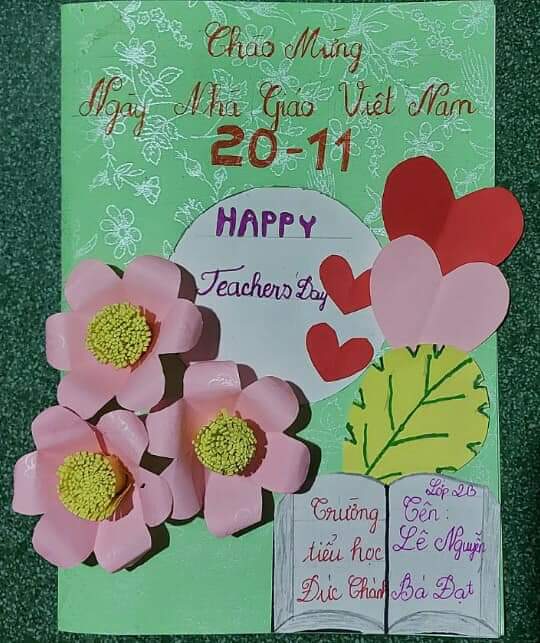 Chào Mừng
Ngày Nhà Giáo Việt Nam
20-11
HAPPY
Teachers' Day
Trường
tiểu học
Đức Chánh
Lớp 2B
Tên:
Lê Nguyễn
Bá Đạt